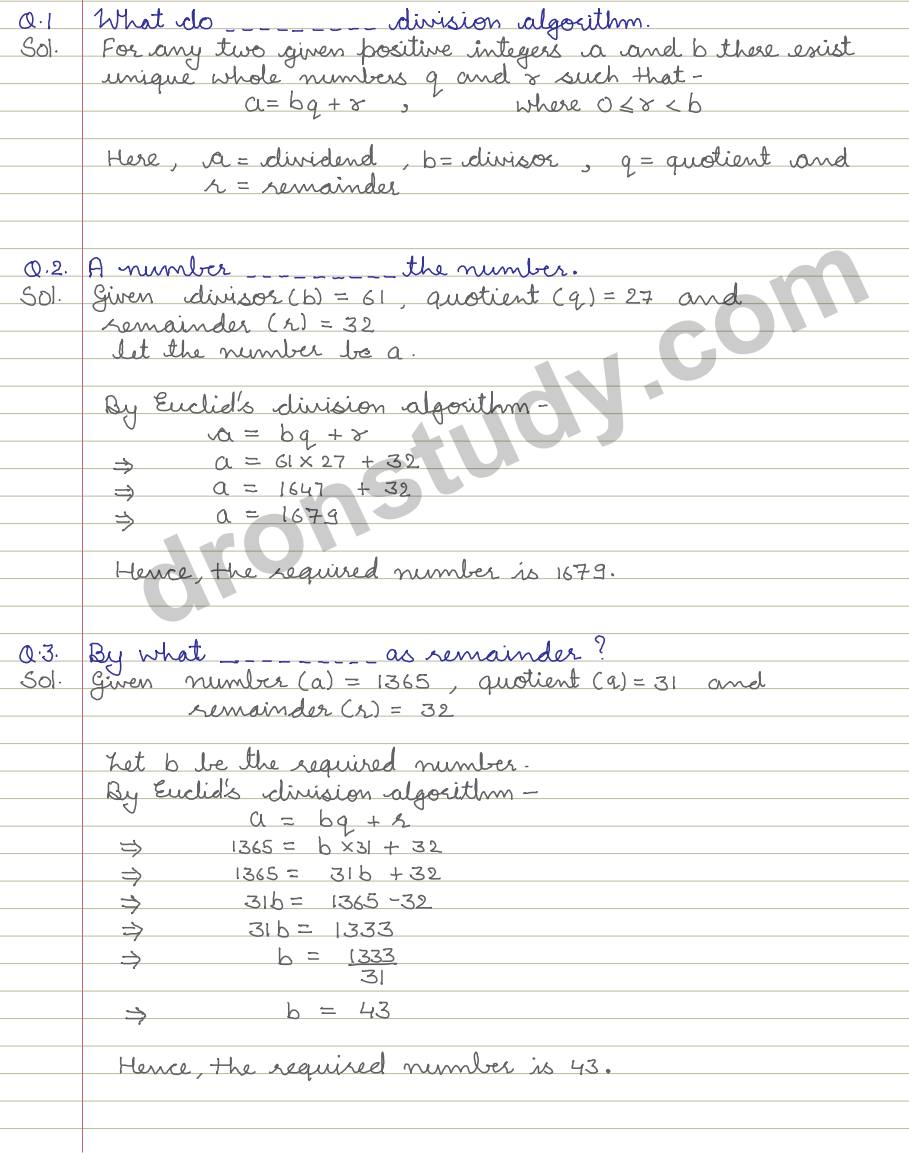 Q.1 What do _ _ _ _ _ _ _ _ _ division algorithm.
Sol. For any two given positive integers a and b there exist
unique whole numbers q and r such that -
a = bq + r , where 0 ≤ r < b
Here, a = dividend, b = divisor, q = quotient and
r = remainder
Q.2. A number _ _ _ _ _ _ _ _ _ the number.
Sol. Given divisor (b) = 61, quotient (q) = 27 and
remainder (r) = 32
let the number be a.
By Euclid's division algorithm -
a = bq + r
⇒ a = 61 × 27 + 32
⇒ a = 1647 + 32
⇒ a = 1679
Hence, the required number is 1679.
Q.3. By what _ _ _ _ _ _ _ _ _ as remainder ?
Sol. Given number (a) = 1365, quotient (q) = 31 and
remainder (r) = 32
Let b be the required number.
By Euclid's division algorithm -
a = bq + r
⇒ 1365 = b × 31 + 32
⇒ 1365 = 31b + 32
⇒ 31b = 1365 - 32
⇒ 31b = 1333
⇒ b = 1333
31
⇒ b = 43
Hence, the required number is 43.
dronstudy.com